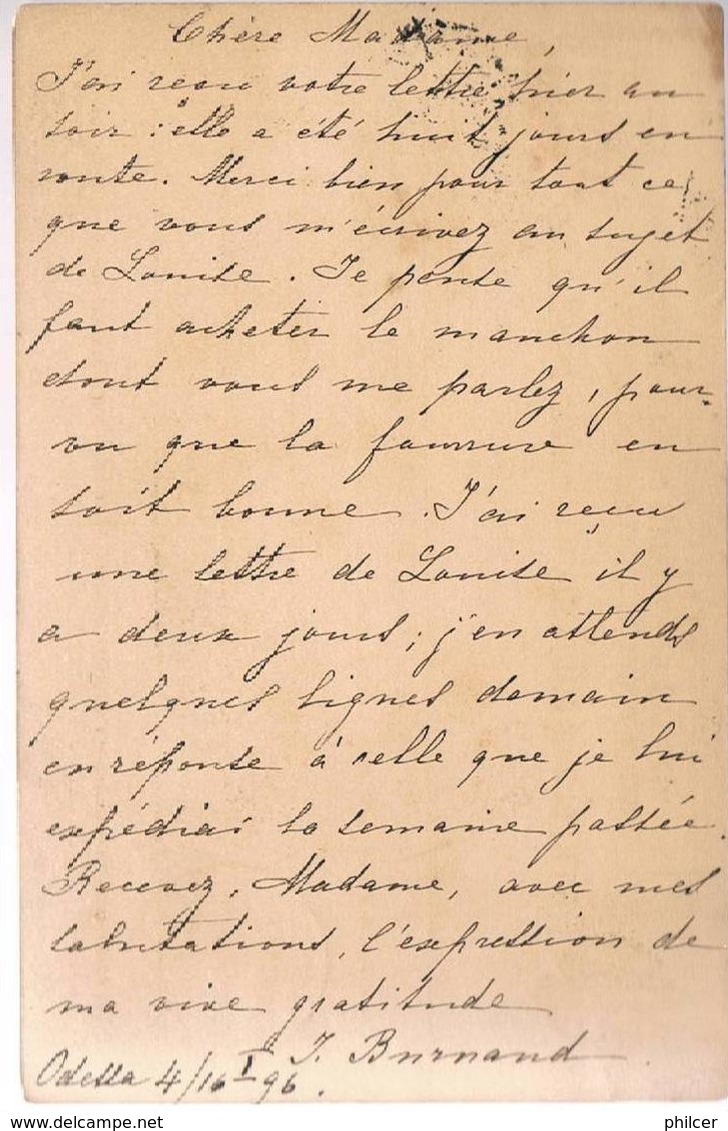 Chère Madame,
J'ai reçu votre lettre hier au
soir; elle a été huit jours en
route. Merci bien pour tout ce
que vous m'écrivez au sujet
de Louise. Je pense qu'il
faut acheter le manchon
dont vous me parlez, pour-
vu que la fourrure en
soit bonne. J'ai reçu
une lettre de Louise il y
a deux jours; j'en attends
quelques lignes demain
en réponse à celle que je lui
expédiai la semaine passée.
Recevez, Madame, avec mes
salutations, l'expression de
ma vive gratitude
J. Burnand
Odessa 4/16 I 96.
www.delcampe.net
philcer